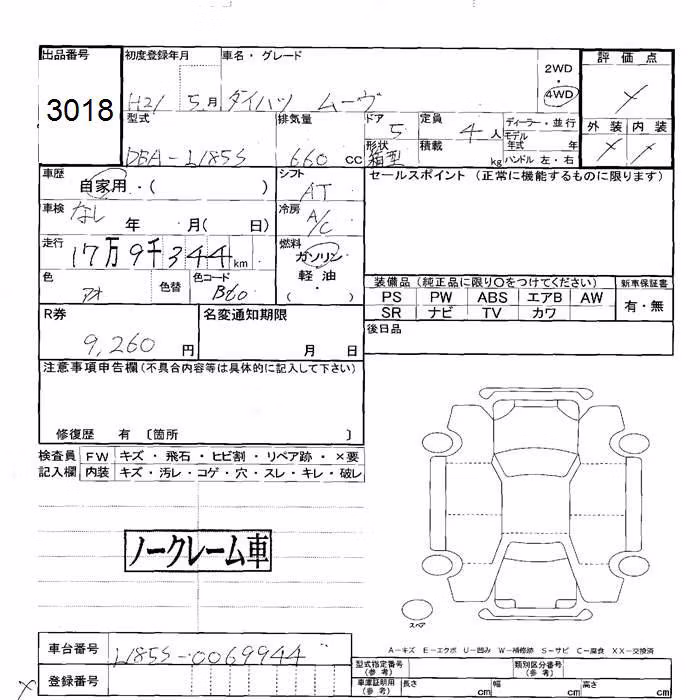 出品番号 初度登録年月 車名・グレード 評価点
3018 H21 5月 ダイハツ ムーヴ 2WD 4WD
型式 排気量 ドア 定員 ディーラー・並行 外装 内装
DBA-L185S 660 cc 5 4 人 モデル年式 年
形状 箱型 積載 kg ハンドル 左・右
車歴 自家用・( ) シフト AT セールスポイント (正常に機能するものに限ります)
車検 なし 年 月( 日) 冷房 A/C
走行 17万9千344km 燃料 ガソリン 軽油 ( )
色 アオ 色替 色コード B60
装備品 (純正品に限り○をつけてください) 新車保証書
PS PW ABS エアB AW 有・無
SR ナビ TV カワ
R券 9,260 円 名変通知期限 月 日 後日品
注意事項申告欄(不具合内容等は具体的に記入して下さい)
修復歴 有 〔箇所 〕
検査員 FW キズ・飛石・ヒビ割・リペア跡・×要
記入欄 内装 キズ・汚レ・コゲ・穴・スレ・キレ・破レ
ノークレーム車
スペア
A-キズ E-エクボ U-凹み W-補修跡 S-サビ C-腐食 XX-交換済
車台番号 L185S-0069944 型式指定番号(参考) 類別区分番号(参考)
登録番号 車庫証明用(参考) 長さ cm 幅 cm 高さ cm